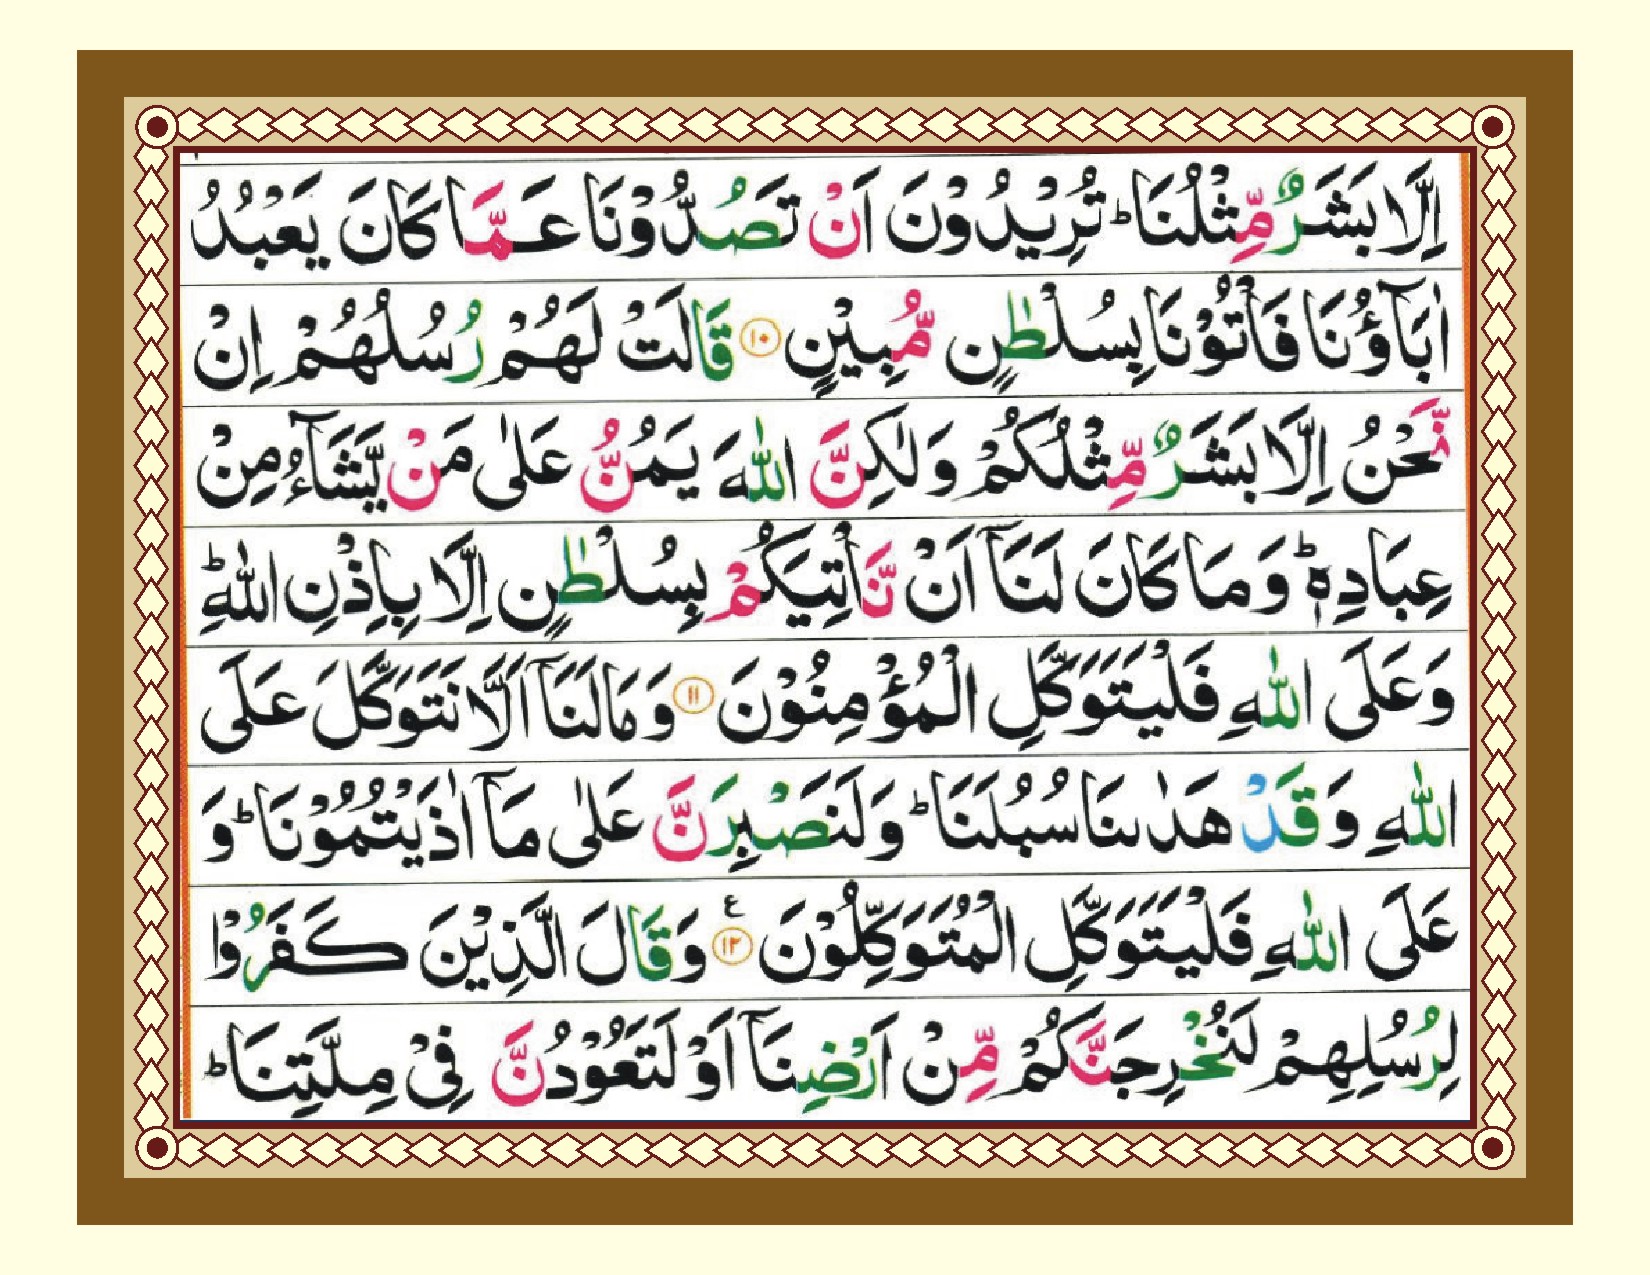 اِلَّا بَشَرٌ مِّثْلُنَا ؕ تُرِيْدُوْنَ اَنْ تَصُدُّوْنَا عَمَّا كَانَ يَعْبُدُ
اٰبَآؤُنَا فَاْتُوْنَا بِسُلْطٰنٍ مُّبِيْنٍ ۝۱۰ قَالَتْ لَهُمْ رُسُلُهُمْ اِنْ
نَّحْنُ اِلَّا بَشَرٌ مِّثْلُكُمْ وَلٰكِنَّ اللّٰهَ يَمُنُّ عَلٰى مَنْ يَّشَآءُ مِنْ
عِبَادِهٖ ؕ وَمَا كَانَ لَنَاۤ اَنْ نَّاْتِيَكُمْ بِسُلْطٰنٍ اِلَّا بِاِذْنِ اللّٰهِ ؕ
وَعَلَى اللّٰهِ فَلْيَتَوَكَّلِ الْمُؤْمِنُوْنَ ۝۱۱ وَمَا لَنَاۤ اَلَّا نَتَوَكَّلَ عَلَى
اللّٰهِ وَقَدْ هَدٰىنَا سُبُلَنَا ؕ وَلَنَصْبِرَنَّ عَلٰى مَاۤ اٰذَيْتُمُوْنَا ؕ وَ
عَلَى اللّٰهِ فَلْيَتَوَكَّلِ الْمُتَوَكِّلُوْنَ ۝۱۲ ع وَقَالَ الَّذِيْنَ كَفَرُوْا
لِرُسُلِهِمْ لَنُخْرِجَنَّكُمْ مِّنْ اَرْضِنَاۤ اَوْ لَتَعُوْدُنَّ فِيْ مِلَّتِنَا ؕ